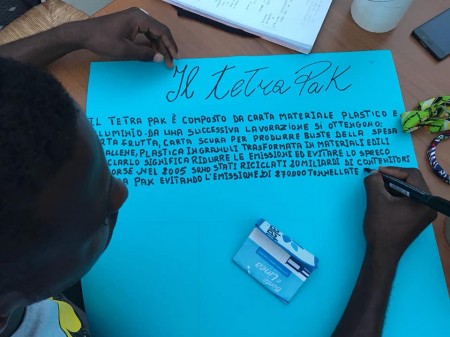 Il Tetra Pak
IL TETRA PAK È COMPOSTO DA CARTA MATERIALE PLASTICO E
LUMINIO. DA UNA SUCCESSIVA LAVORAZIONE SI OTTENGONO:
RTA FRUTTA, CARTA SCURA PER PRODURRE BUSTE DELLA SPESA
ALLENE, PLASTICA IN GRANULI TRASFORMATA IN MATERIALI EDILI
CLARLO SIGNIFICA RIDURRE LE EMISSIONI ED EVITARE LO SPRECO
ORSE. NEL 2005 SONO STATI RICICLATI 20 MILIARDI DI CONTENITORI
PAK EVITANDO L'EMISSIONE DI 270000 TONNELLATE